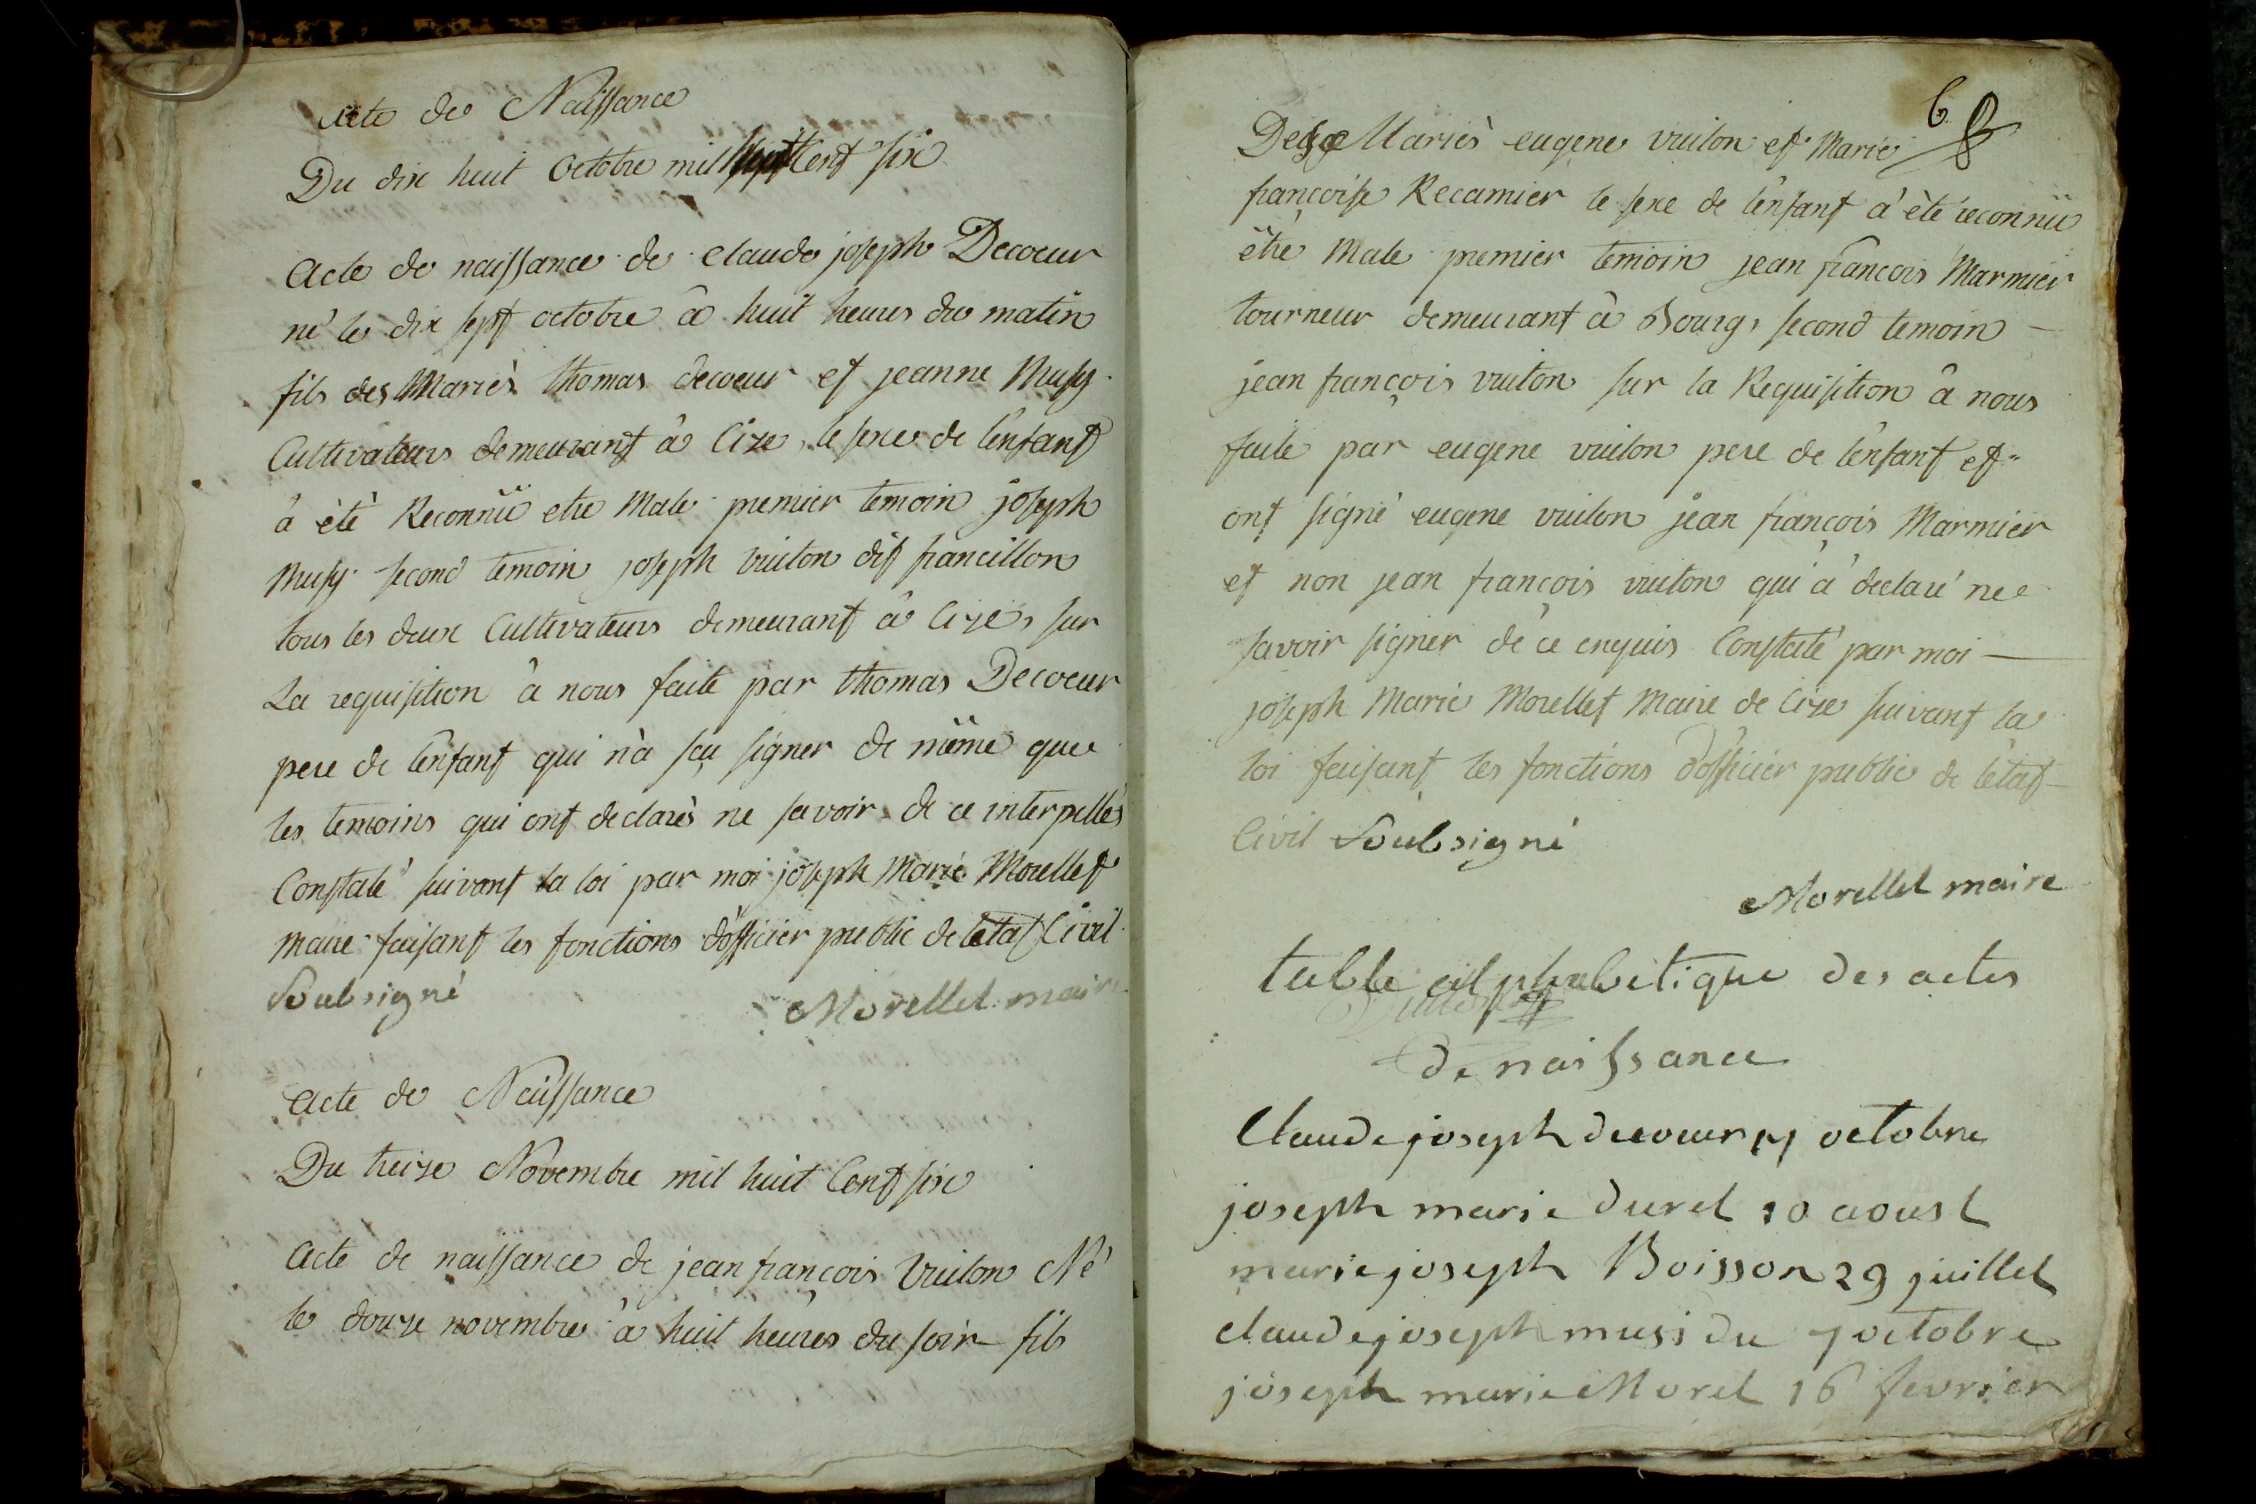 acte de Naissance
Du dix huit octobre mil Cent six
acte de naissance de claude joseph Decoeur
né le dix sept octobre à huit heures du matin
fils des Mariés thomas decoeur et jeanne Musy
Cultivateurs demeurant â Cize, le sexe de l'enfant
â été Reconnü etre Male premier temoin joseph
Musy second temoin joseph vuiton dit francillon
tous les deux Cultivateurs demeurant â Cize, sur
La requisition â nous faite par thomas Decoeur
pere de l'enfant qui n'a sçu signer de même que
les temoins qui ont declarés ne savoir de ce interpellés
Constaté suivant la loi par moi joseph Marie Morellet
maire faisant les fonctions d'officier public de l'etat Civil
Soubsigné Morellet maire
acte de Naissance
Du treize Novembre mil huit Cent six
acte de naissance de jean françois Vuiton Né
le douze novembre â huit heures du soir fils
6
De Mariés eugene vuiton et Marie
françoise Recamier le sexe de l'enfant â été reconnü
être Male premier temoin jean francois Marmier
tourneur demeurant â Bourg, second temoin
jean françois vuiton sur la Requisition â nous
faite par eugene vuiton pere de l'enfant et
ont signé eugene vuiton jean françois Marmier
et non jean françois vuiton qui â declaré ne
savoir signer de ce enquis Constaté par moi
joseph Marie Morellet Maire de Cize suivant la
loi faisant les fonctions d'officier public de l'état
Civil Soubsigné
Morellet maire
table alphabetique des actes
de naissance
Claude joseph decoeur 17 octobre
joseph marie durel 10 aoust
marie joseph Boisson 29 juillet
claude joseph musi du 7 octobre
joseph marie Morel 16 fevrier